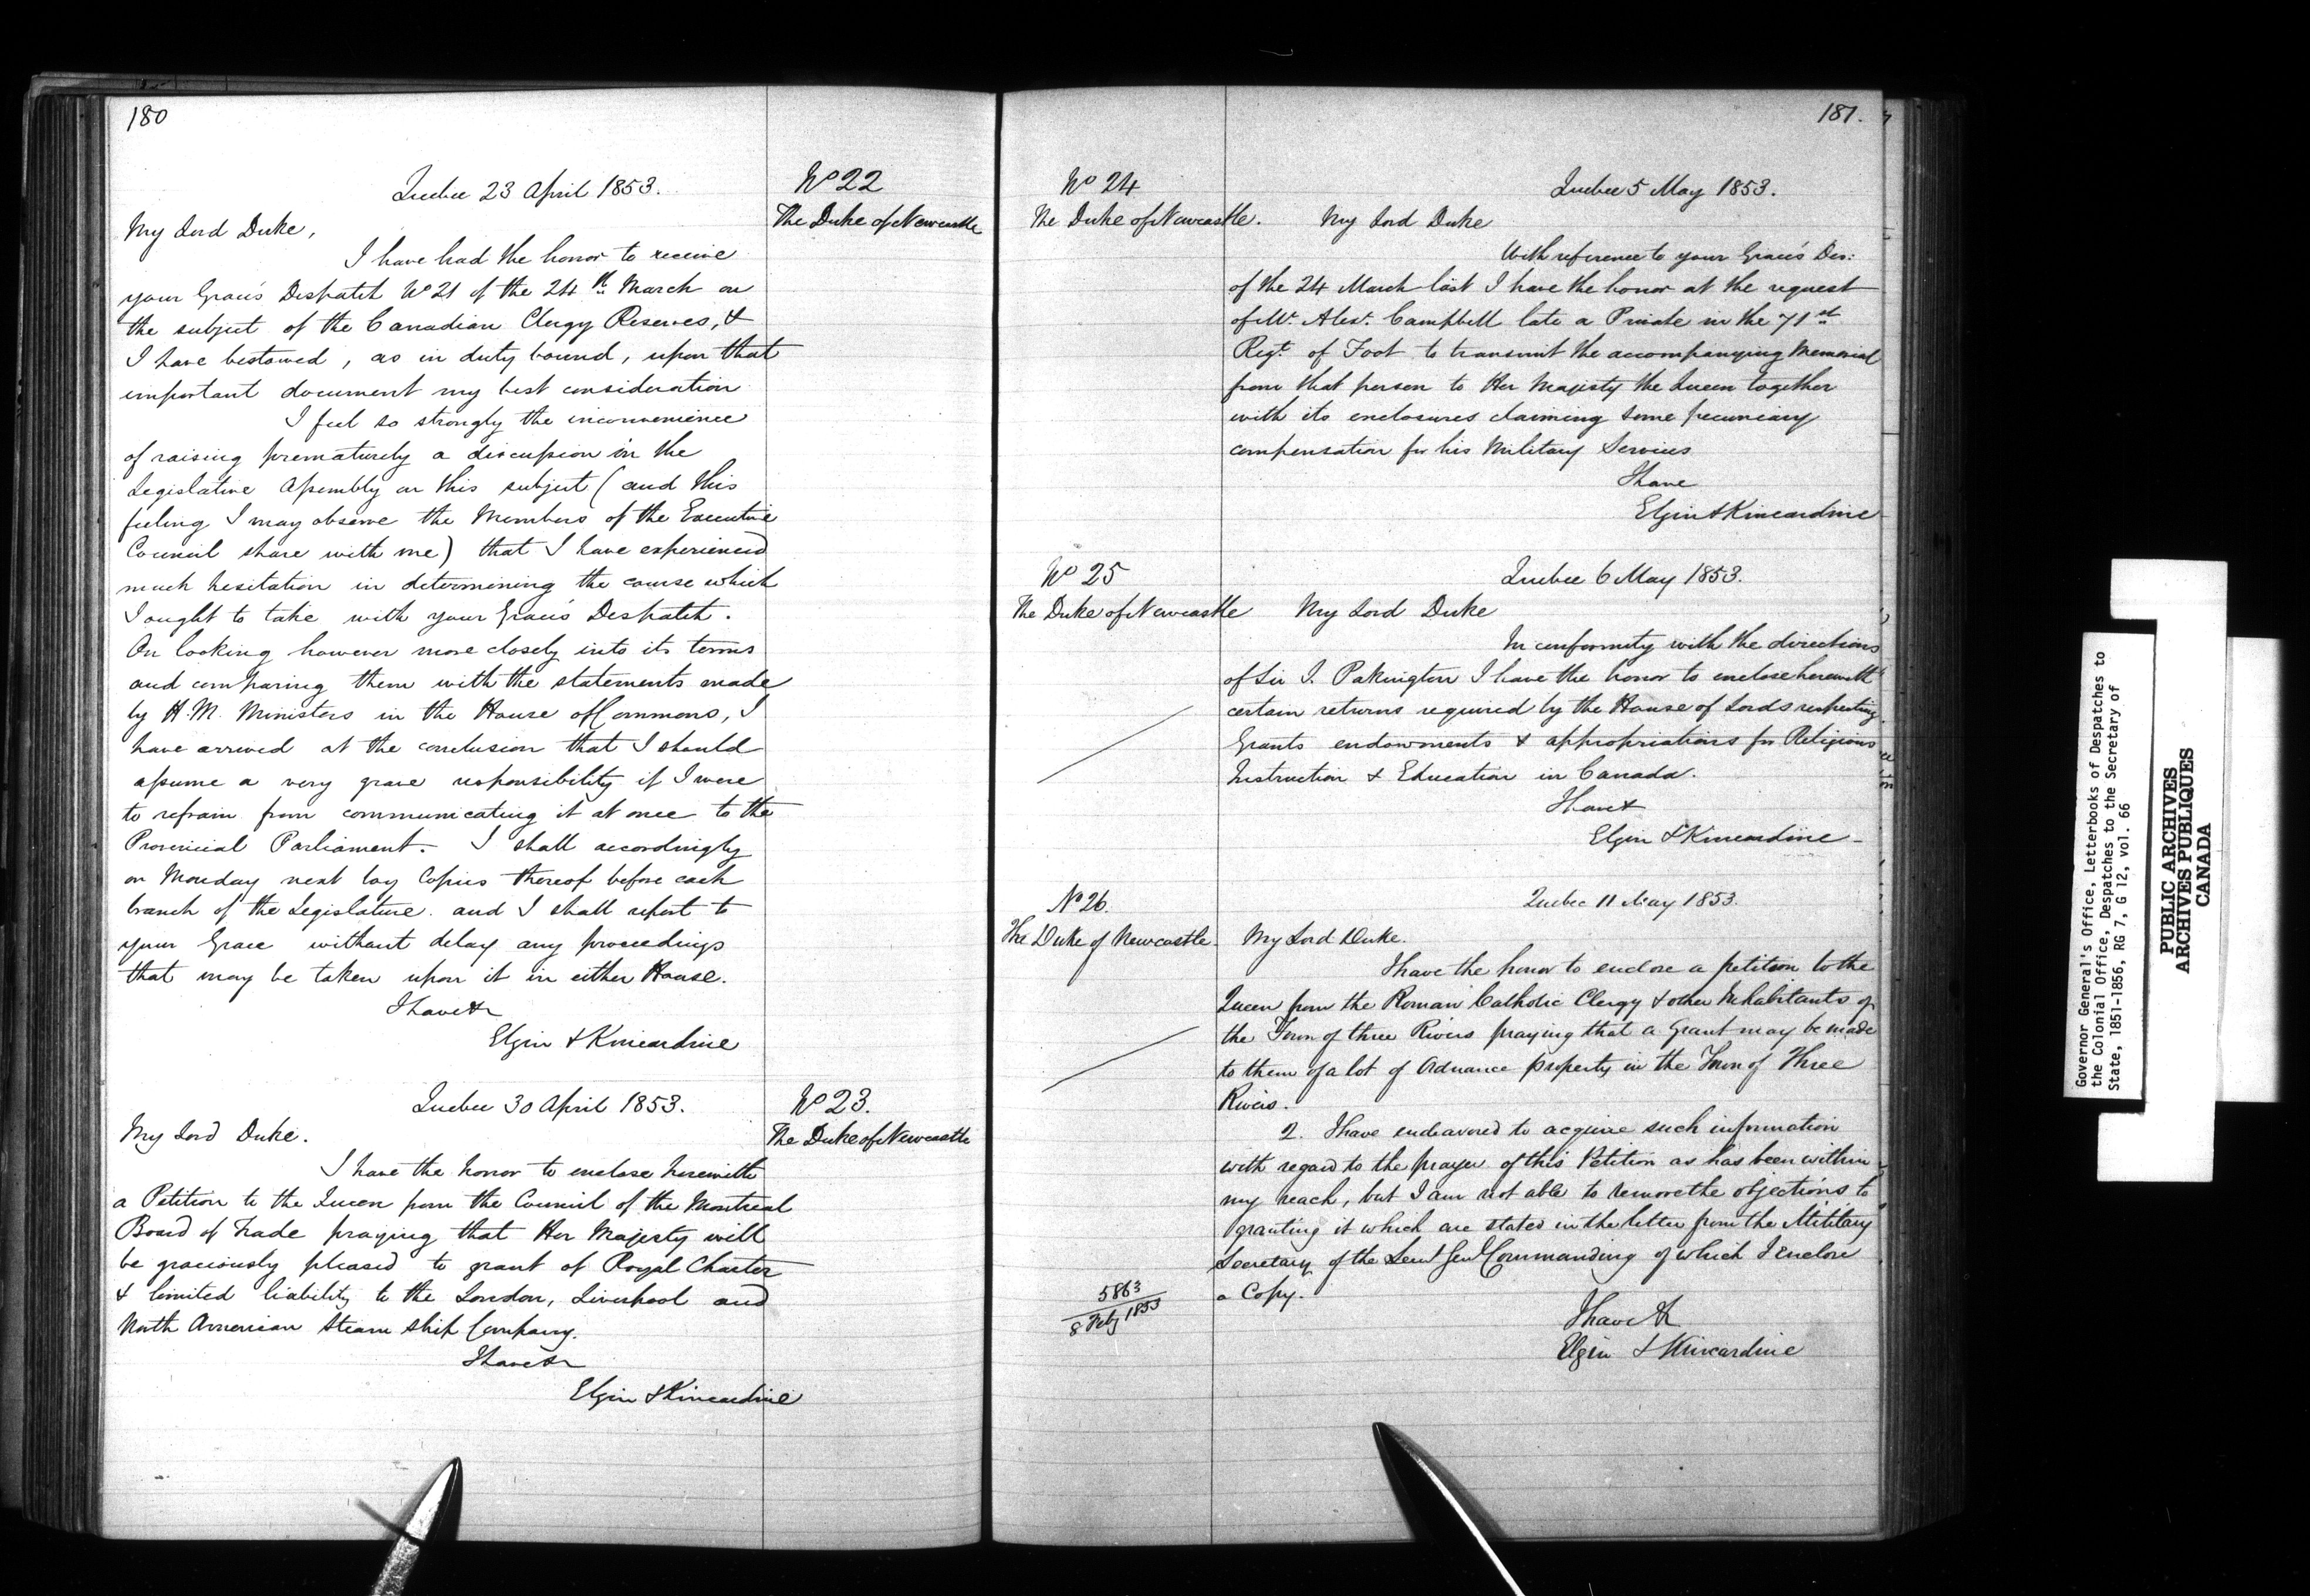 180
Quebec 23 April 1853.
No 22
The Duke of Newcastle
My Lord Duke,
I have had the honor to receive
your Grace's Despatch No 21 of the 24th March on
the subject of the Canadian Clergy Reserves, &
I have bestowed, as in duty bound, upon that
important document my best consideration
I feel so strongly the inconvenience
of raising prematurely a discussion in the
Legislative Assembly on this subject (and this
feeling I may observe the Members of the Executive
Council share with me) that I have experienced
much hesitation in determining the course which
I ought to take with your Grace's Despatch.
On looking however more closely into its terms
and comparing them with the statements made
by H.M. Ministers in the House of Commons, I
have arrived at the conclusion that I should
assume a very grave responsibility if I were
to refrain from communicating it at once to the
Provincial Parliament. I shall accordingly
on Monday next lay Copies thereof before each
branch of the Legislature. and I shall report to
your Grace without delay any proceedings
that may be taken upon it in either House.
I have &
Elgin & Kincardine
Quebec 30 April 1853.
No 23.
The Duke of Newcastle
My Lord Duke.
I have the honor to enclose herewith
a Petition to the Queen from the Council of the Montreal
Board of Trade praying that Her Majesty will
be graciously pleased to grant of Royal Charter
& limited liability to the London, Liverpool and
North American Steam Ship Company.
I have &
Elgin & Kincardine
181.
No 24
The Duke of Newcastle.
Quebec 5 May 1853.
My Lord Duke
With reference to your Grace's Des:
of the 24 March last I have the honor at the request
of Mr. Alexr. Campbell late a Private in the 71st
Regt. of Foot to transmit the accompanying Memorial
from that person to Her Majesty the Queen together
with its enclosures claiming some pecuniary
compensation for his Military Services
I have
Elgin & Kincardine
No 25
The Duke of Newcastle
Quebec 6 May 1853.
My Lord Duke
In conformity with the directions
of Sir J. Pakington I have the honor to enclose herewith
certain returns required by the House of Lords respecting
Grants endowments & appropriations for Religious
Instruction & Education in Canada.
I have &
Elgin & Kincardine
No 26.
The Duke of Newcastle.
Quebec 11 May 1853.
My Lord Duke.
I have the honor to enclose a petition to the
Queen from the Roman Catholic Clergy & other Inhabitants of
the Town of three Rivers praying that a Grant may be made
to them of a lot of Ordnance property in the Town of Three
Rivers.
2. I have endeavored to acquire such information
with regard to the prayer of this Petition as has been within
my reach, but I am not able to remove the objections to
granting it which are stated in the letter from the Military
Secretary of the Lieut Genl Commanding of which I enclose
a Copy.
5863
8 Feby 1853
I have &
Elgin & Kincardine
Governor General's Office, Letterbooks of Despatches to
the Colonial Office, Despatches to the Secretary of
State, 1851-1856, RG 7, G 12, vol. 66
PUBLIC ARCHIVES
ARCHIVES PUBLIQUES
CANADA